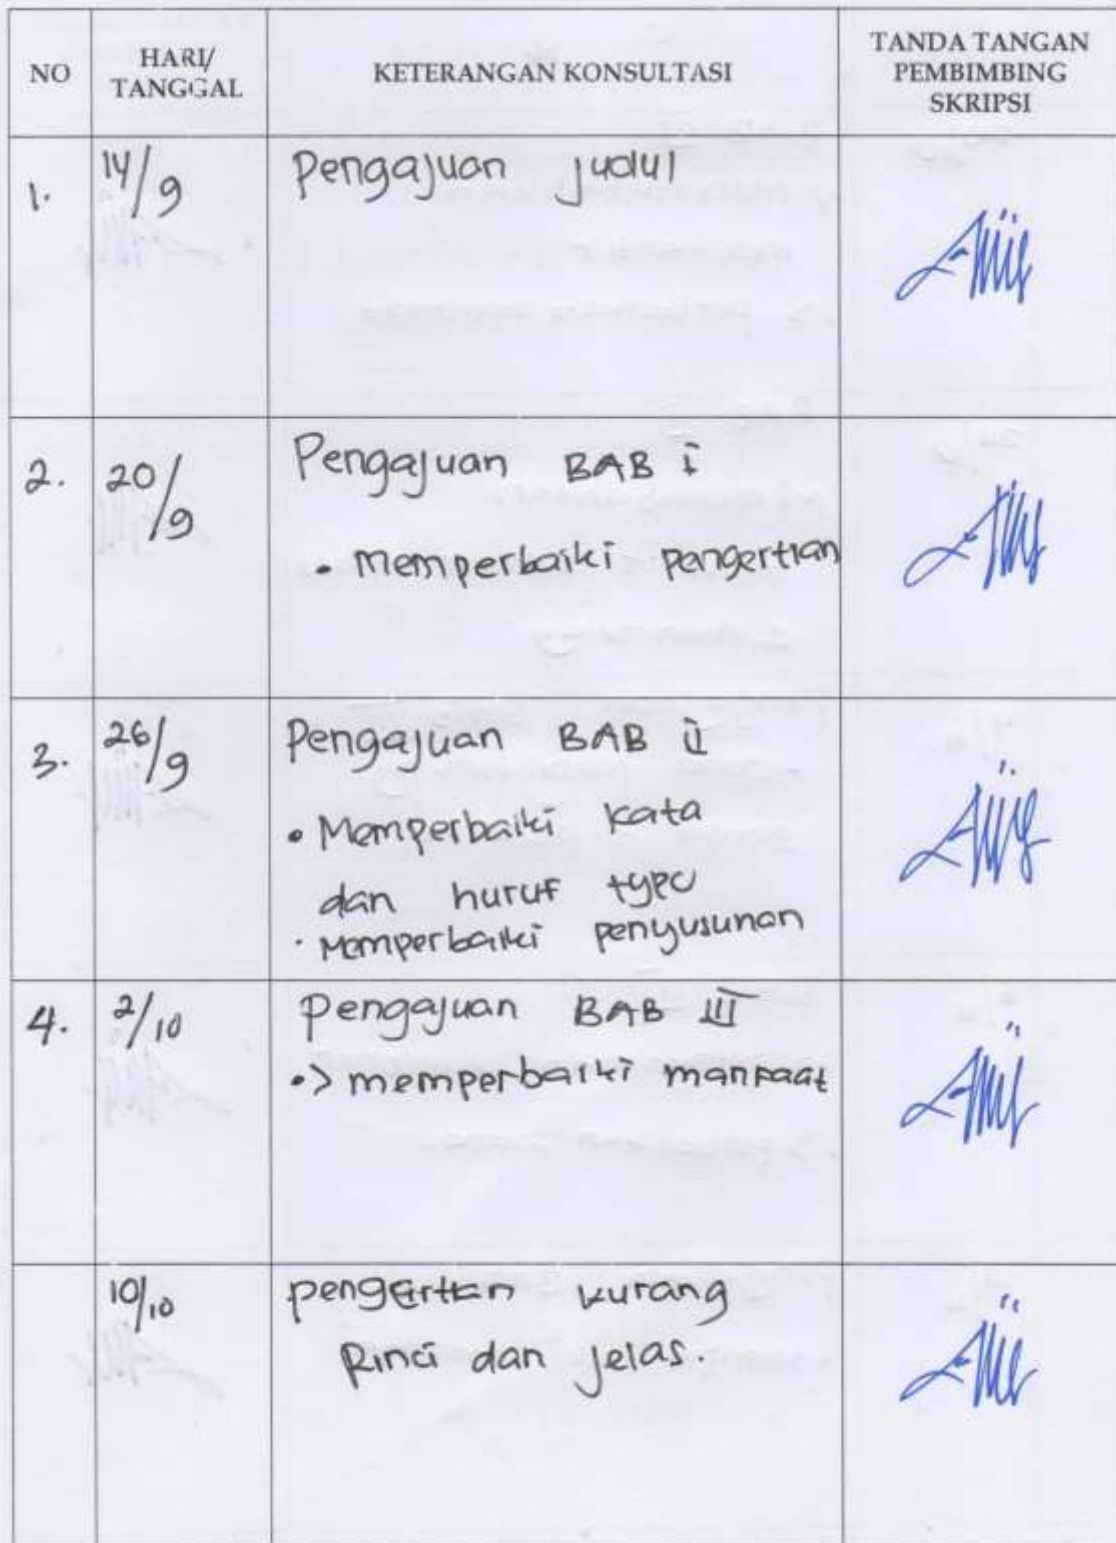 NO
HARI/
TANGGAL
KETERANGAN KONSULTASI
TANDA TANGAN
PEMBIMBING
SKRIPSI
1.
14/9
Pengajuan judul
2.
20/9
Pengajuan BAB i
• memperbaiki pengertian
3.
26/9
Pengajuan BAB ii
• Memperbaiki kata
dan huruf typo
• Memperbaiki penyusunan
4.
2/10
Pengajuan BAB III
•> memperbaiki manfaat
10/10
pengertian kurang
Rinci dan jelas.